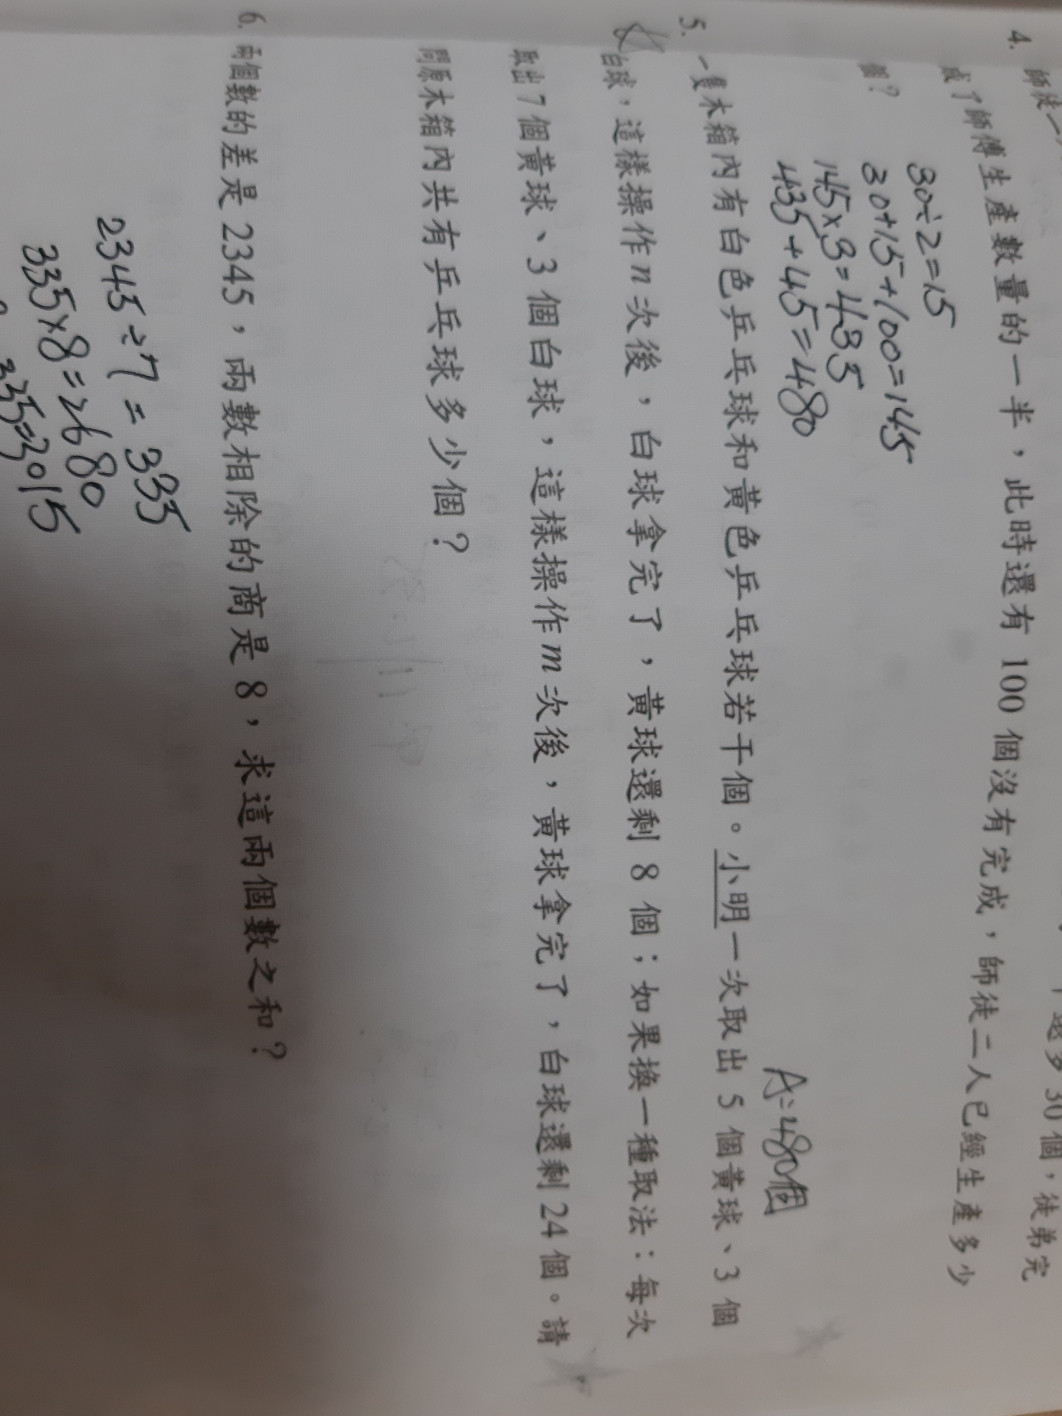 4. 師徒二
多 30 個，徒弟完
成了師傅生產數量的一半，此時還有 100 個沒有完成，師徒二人已經生產多少
個？
30÷2=15
30+15+100=145
145×3=435
435+45=480
A=480個
5. 一隻木箱內有白色乒乓球和黃色乒乓球若干個。小明一次取出 5 個黃球、3 個
白球，這樣操作n次後，白球拿完了，黃球還剩 8 個；如果換一種取法：每次
取出 7 個黃球、3 個白球，這樣操作m次後，黃球拿完了，白球還剩 24 個。請
問原木箱內共有乒乓球多少個？
6. 兩個數的差是 2345，兩數相除的商是 8，求這兩個數之和？
2345÷7=335
335×8=2680
335=3015